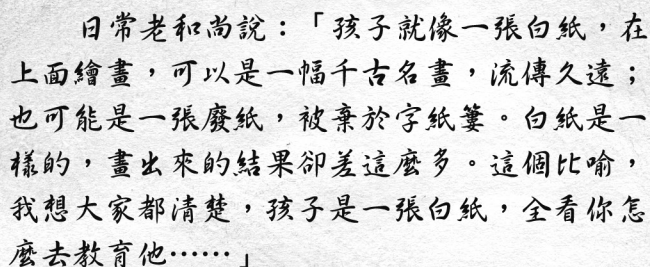 日常老和尚說：「孩子就像一張白紙，在
上面繪畫，可以是一幅千古名畫，流傳久遠；
也可能是一張廢紙，被棄於字紙簍。白紙是一
樣的，畫出來的結果卻差這麼多。這個比喻，
我想大家都清楚，孩子是一張白紙，全看你怎
麼去教育他⋯⋯」